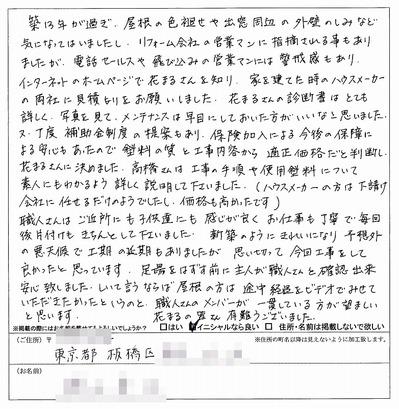 築13年が過ぎ、屋根の色褪せや出窓周辺の外壁のしみなど
気になってはいましたし、リフォーム会社の営業マンに指摘される事もあり
ましたが、電話セールスや飛び込みの営業マンには警戒感もあり、
インターネットのホームページで花まるさんを知り、家を建てた時のハウスメーカー
の両社に見積もりをお願いしました。花まるさんの診断書はとても
詳しく、写真を見て、メンテナンスは早目にしておいた方がいいなと思いました。
又、丁度、補助金制度の提案もあり、保険加入による今後の保障に
よる安心もあったので塗料の質と工事内容から適正価格だと判断し、
花まるさんに決めました。高橋さんは工事の手順や使用塗料について
素人にもわかるよう詳しく説明して下さいました。(ハウスメーカーの方は下請け
会社に任せるだけのようでしたし、価格も高かったです)
職人さんはご近所にも子供達にも感じが良くお仕事も丁寧で毎回
後片付けもきちんとして下さいました。新築のようにきれいになり予想外
の悪天候で工期の延期もありましたが思い切って今回工事をして
良かったと思っています。足場をはずす前に主人が職人さんと確認出来
安心致しました。しいて言うならば屋根の方は途中経過をビデオでみせて
いただきたかったというのと、職人さんのメンバーが一貫している方が望ましい
と思います。花まるの皆さん有難うございました。
※掲載の際にはお名前を載せてもよろしいでしょうか? □はい □イニシャルなら良い □住所・名前は掲載しないで欲しい
(ご住所) 〒 ※住所の町名以降は見えないように加工致します。
東京都 板橋区
(お名前)